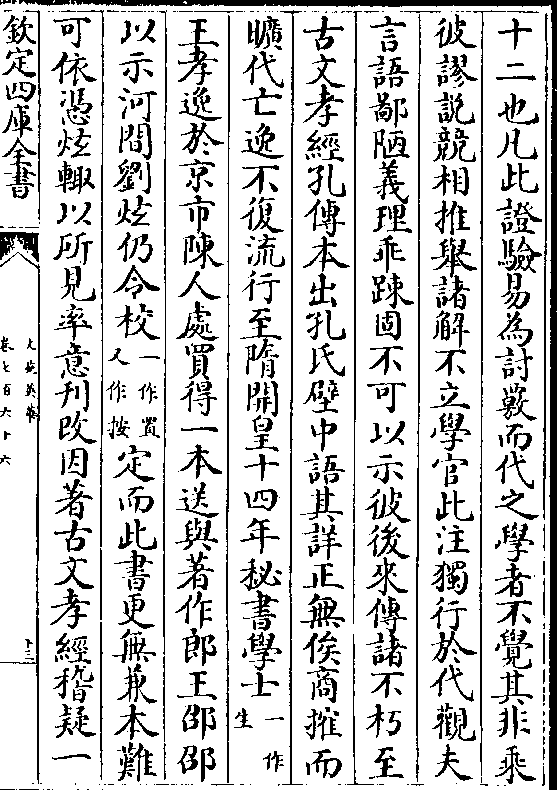 十二也凡此證驗易為討覈而代之學者不覺其非乘
彼謬說競相推舉諸解不立學官此注獨行於代觀夫
言語鄙陋義理乖踈固不可以示彼後來傳諸不朽至
古文孝經孔傳本出孔氏壁中語其詳正無俟商搉而
曠代亡逸不復流行至隋開皇十四年秘書學士一作生
王孝逸於京市陳人處買得一本送與著作郎王邵邵
以示河間劉炫仍令校一作置又作按定而此書更無兼本難
可依憑炫輙以所見率意刊改因著古文孝經稽疑一
欽定四庫全書
文苑英華
卷七百六十六
十三